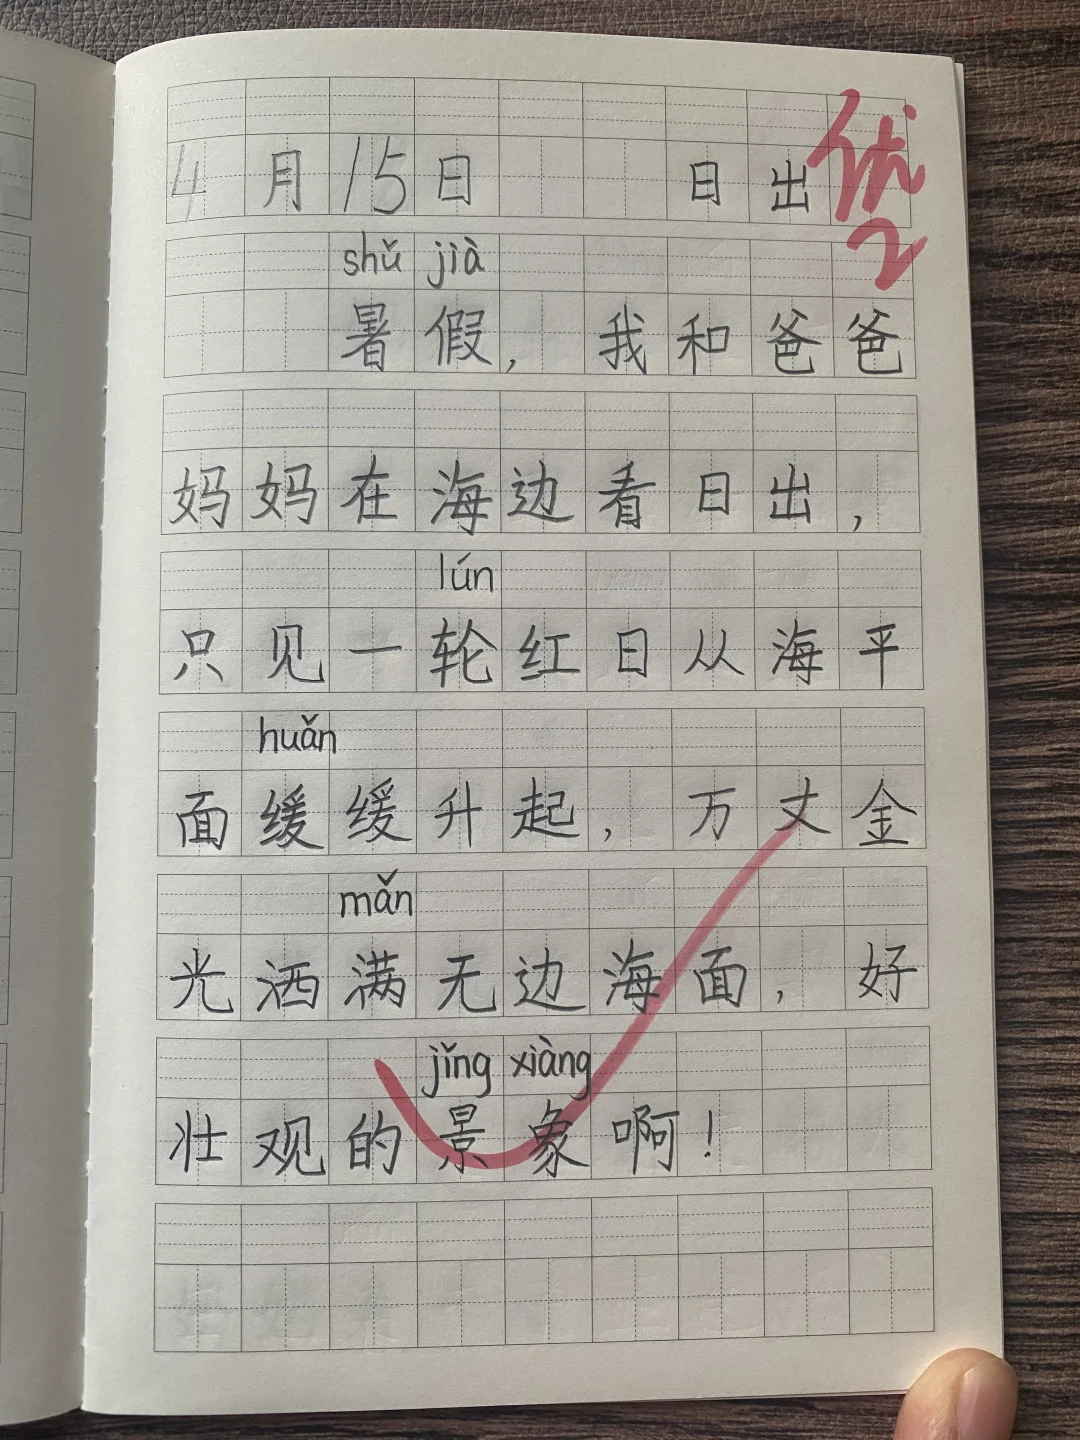 4月15日 日出
优2
shǔ jià
暑假，我和爸爸
妈妈在海边看日出，
lún
只见一轮红日从海平
huǎn
面缓缓升起，万丈金
mǎn
光洒满无边海面，好
jǐng xiàng
壮观的景象啊！